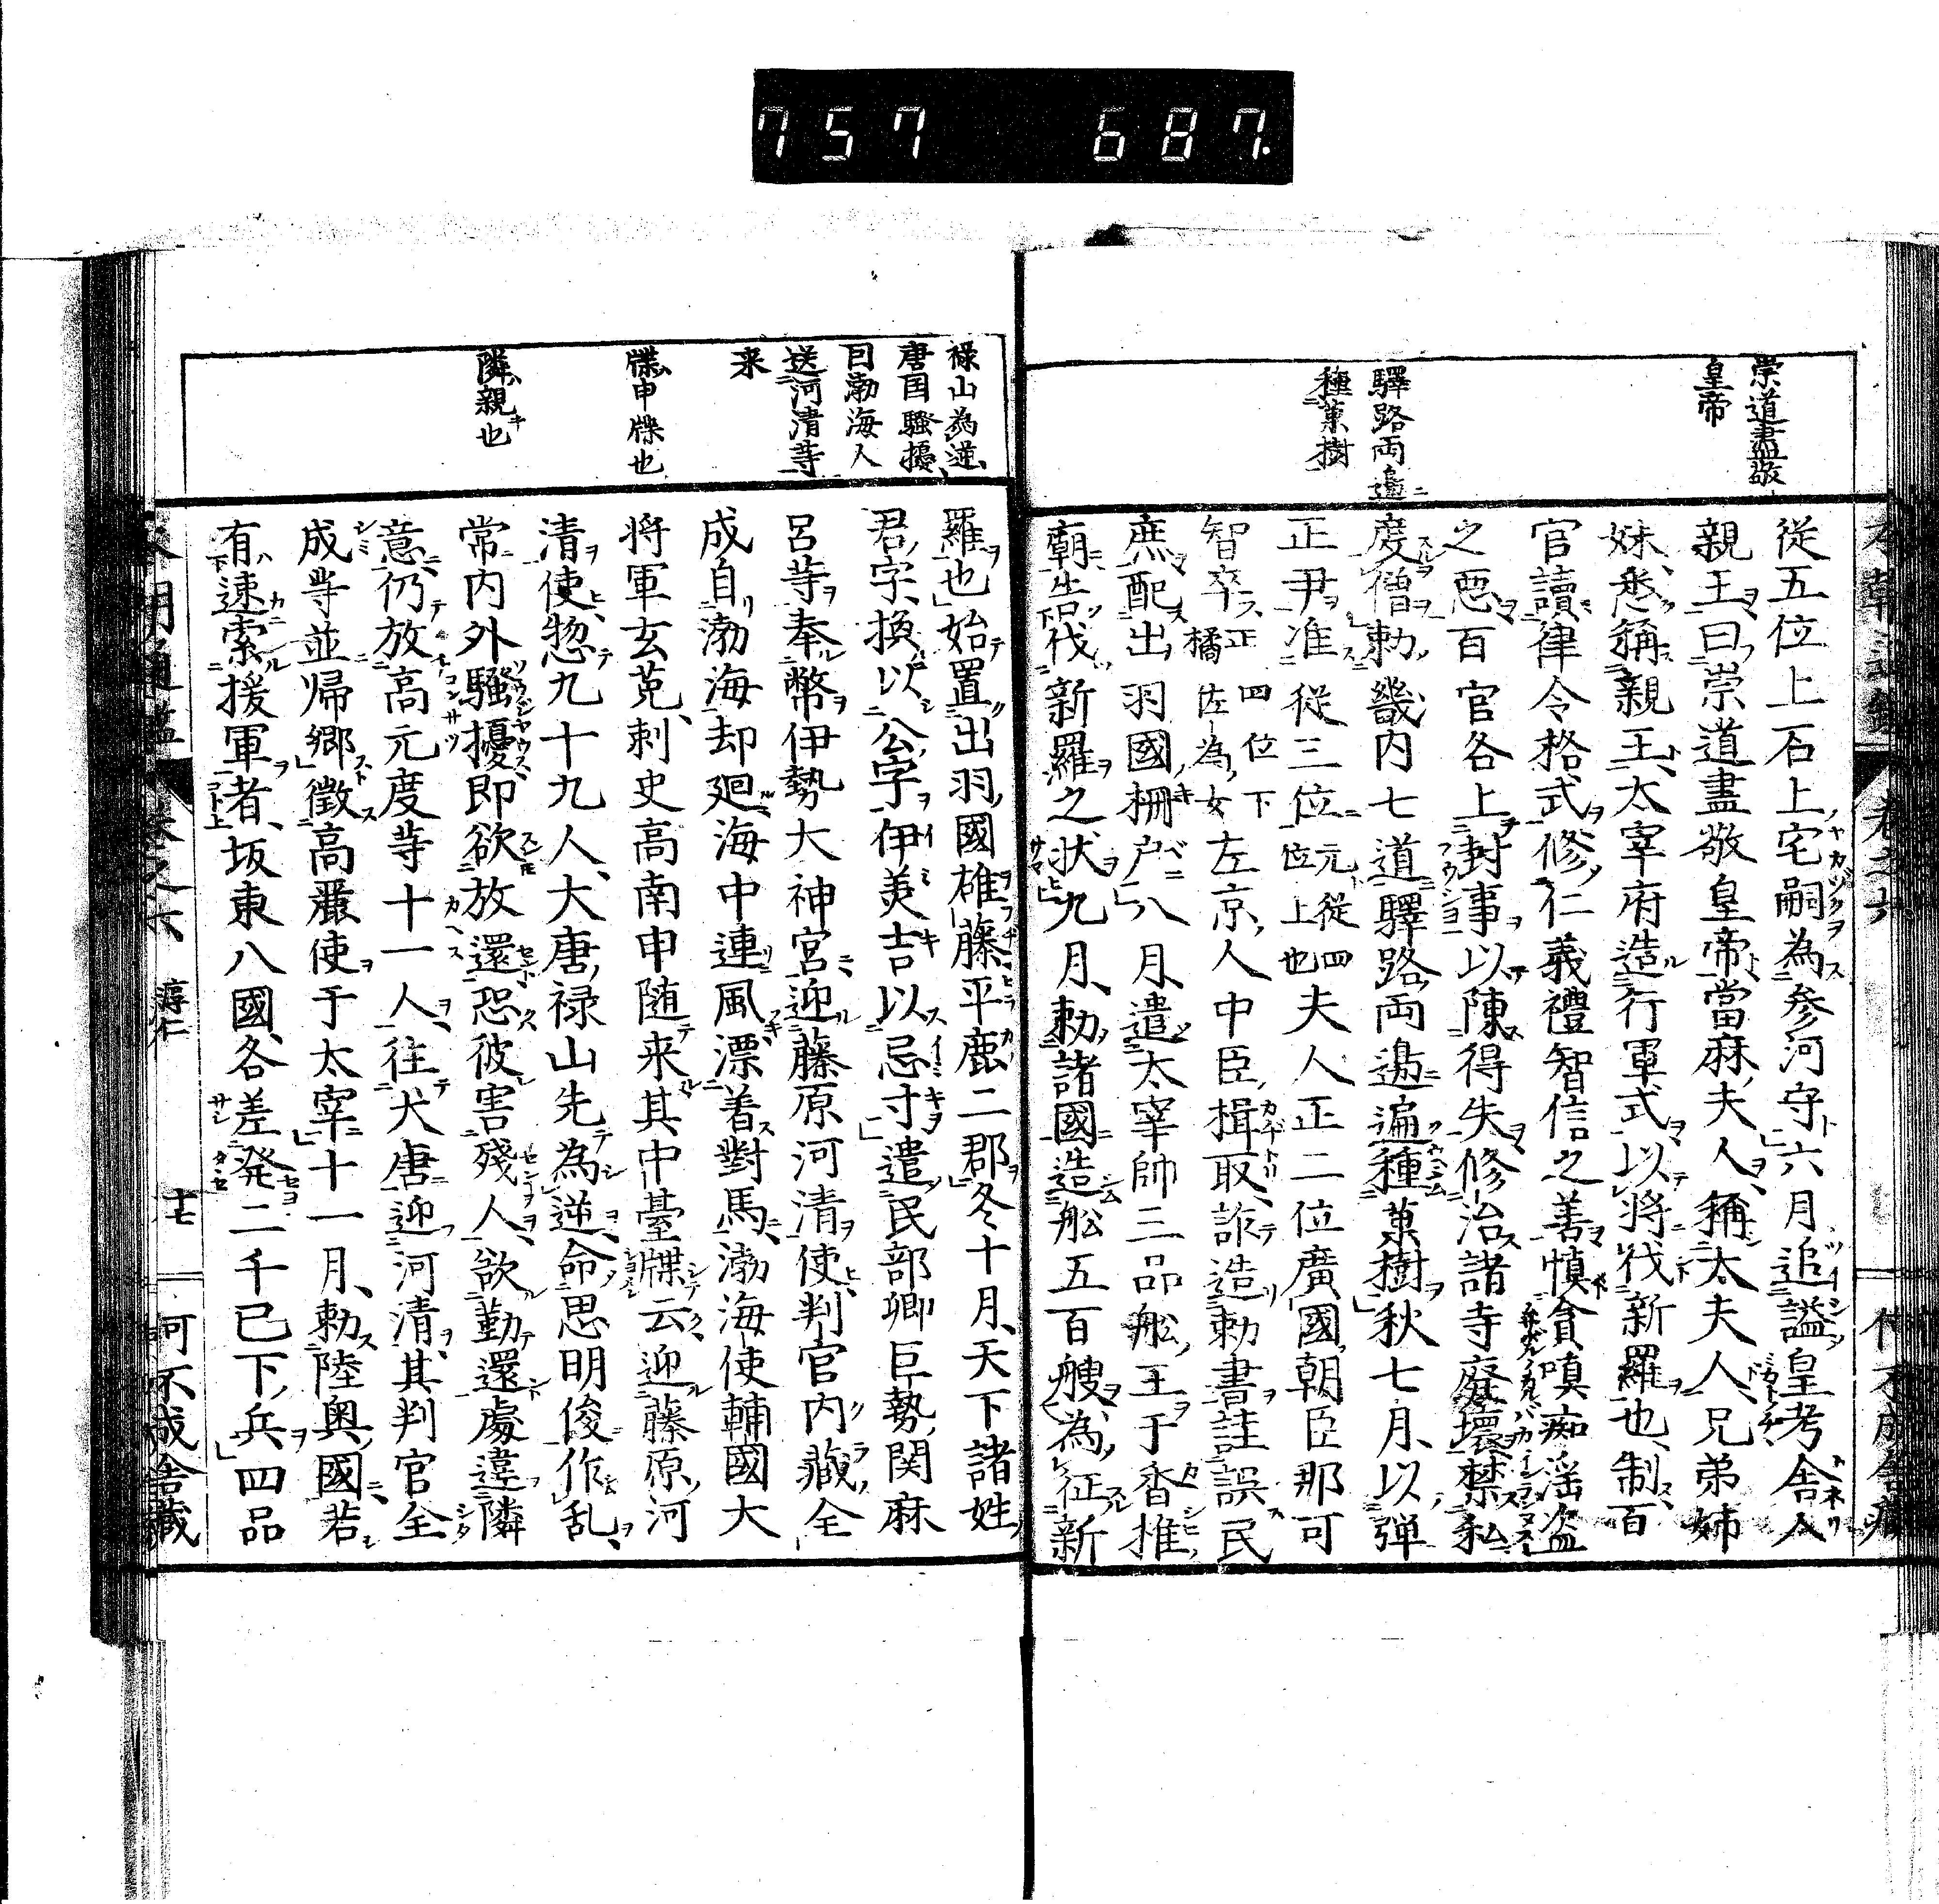 757 687.
崇道盡敬
皇帝
驛路両邉
種菓樹
従五位上石上宅嗣為参河守六月追謚皇考舎人
親王曰崇道盡敬皇帝當麻夫人稱太夫人兄弟姉
妹悉稱親王太宰府造行軍式以将伐新羅也制百
官讀律令格式修仁義禮智信之善慎貪嗔痴淫盗
之惡百官各上封事以陳得失修治諸寺廃壊禁私
度僧勅畿内七道驛路両邉遍種菓樹秋七月以弾
正尹准従三位元従四位上也夫人正二位廣國朝臣那可
智卒正四位下橘佐為女左京人中臣揖取詐造勅書詿誤民
庶配出羽國柵戸八月遣太宰帥三品舩王于香椎
朝告伐新羅之状九月勅諸國造舩五百艘為征新
禄山為逆
唐国騒擾
囙渤海人
送河清等
来
牒申牒也
隣親也
羅也始置出羽國雄藤平鹿二郡冬十月天下諸姓
君字換以公字伊美吉以忌寸遣民部卿巨勢関麻
呂等奉幣伊勢大神宮迎藤原河清使判官内蔵全
成自渤海却廻海中連風漂着對馬渤海使輔國大
将軍玄菟刺史高南申随来其中臺牒云迎藤原河
清使惣九十九人大唐禄山先為逆命思明俊作乱
常内外騒擾即欲放還恐彼害殘人欲勤還處違隣
意仍放高元度等十一人往犬唐迎河清其判官全
成等並帰郷徴高嚴使于太宰十一月勅陸奥國若
有速索援軍者坂東八國各差発二千已下兵四品
卷之六 淳仁
十七
何不成舎蔵